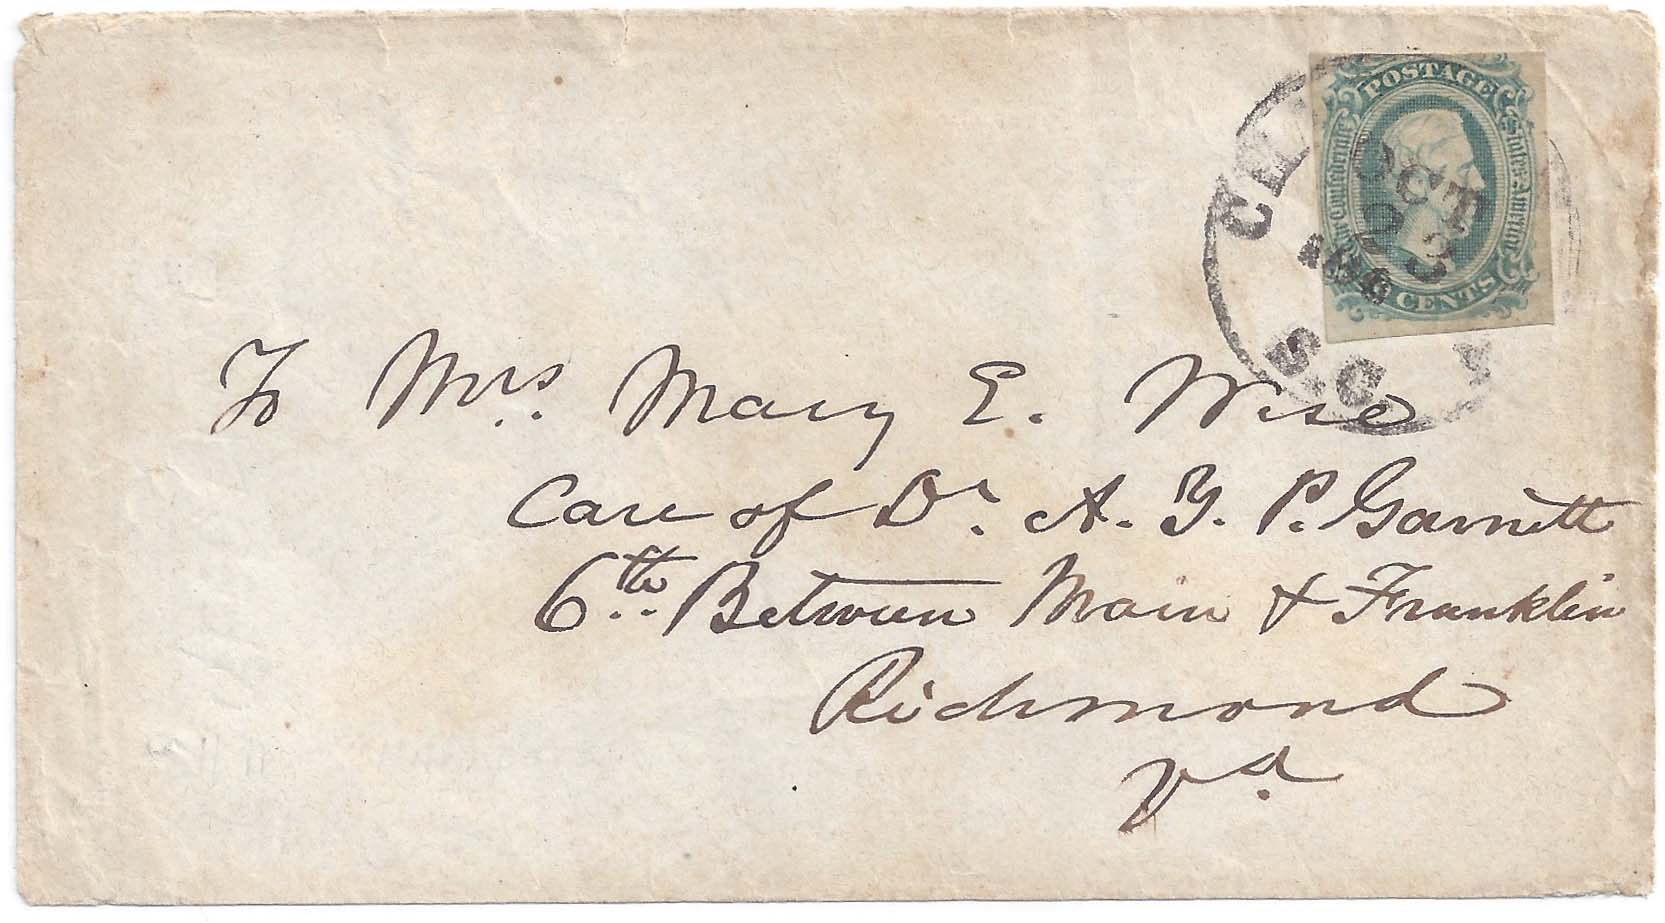 POSTAGE
The Confederate States of America
OCT
23
CENTS
S.C.
To Mrs. Mary E. Wise
Care of Dr. A. Y. P. Garnett
6th. Between Main & Franklin
Richmond
Va.